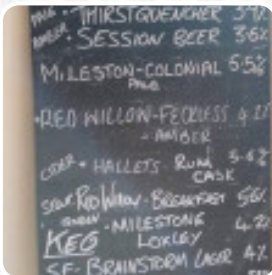 PALE - THIRSTQUENCHER 3.9%
AMBER - SESSION BEER 3.6%
MILESTON-COLONIAL 5.5%
PALE
RED WILLOW-FECKLESS 4.2%
- AMBER
CIDER + HALLETS RUM 5.6%
CASK
STOUT RED WILLOW - BREAKFAST 5.6%
- MILESTONE 4.2%
KEG LOXLEY
SF- BRAINSTORM LAGER 4%